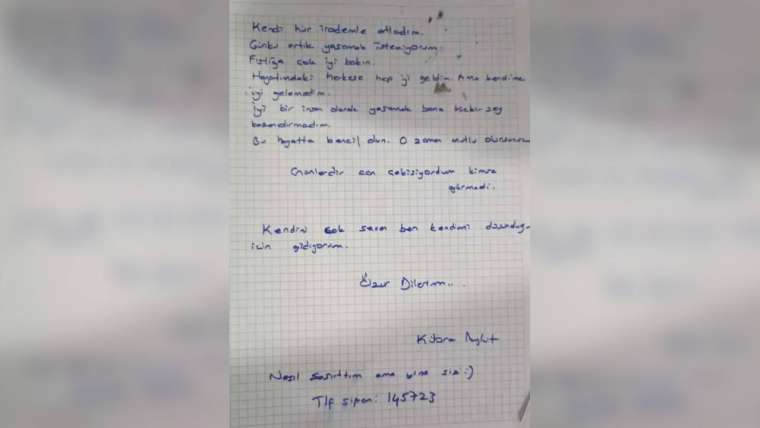 Kendi hür irademle atladım.
Çünkü artık yaşamak istemiyorum.
Fıstığa çok iyi bakın.
Hayatımdaki herkese hep iyi geldim. Ama kendime
iyi gelemedim.
İyi bir insan olarak yaşamak bana hiçbir şey
kazandırmadım.
Bu hayatta bencil olun. O zaman mutlu olursunuz
Günlerdir can çekişiyordum kimse
görmedi.
Kendini çok seven ben kendimi
için gidiyorum.
Özür Dilerim..
Kübra Aykut
Nasıl şaşırttım ama yine sizi :)
Tlf şifrem: 145723